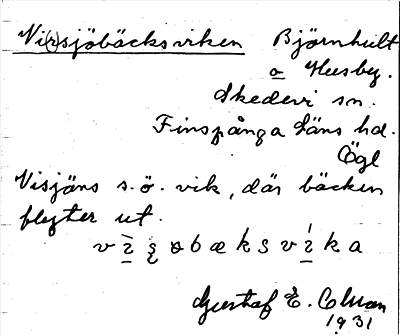 Vi(r)sjöbäcksviken Björnhult
o Husby.
Skedevi sn.
Finspånga läns hd.
Ögl
Visjöns s.ö. vik, där bäcken
flyter ut.
Gustaf E. Colman
1931